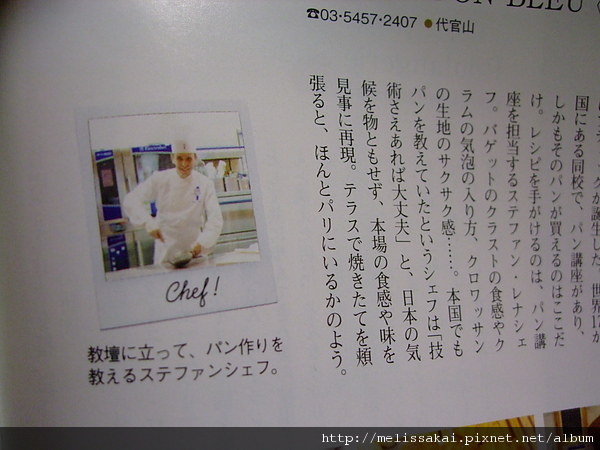 ON BLEU
☎03・5457・2407 ●代官山
国にある同校で、パン講座があり、
しかもそのパンが買えるのはここだ
け。レシピを手がけるのは、パン講
座を担当するステファン・レナシェ
フ。バゲットのクラストの食感やク
ラムの気泡の入り方、クロワッサン
の生地のサクサク感……。本国でも
パンを教えていたというシェフは「技
術さえあれば大丈夫」と、日本の気
候を物ともせず、本場の食感や味を
見事に再現。テラスで焼きたてを頬
張ると、ほんとパリにいるかのよう。
Chef!
教壇に立って、パン作りを
教えるステファンシェフ。
http://melissakai.pixnet.net/album